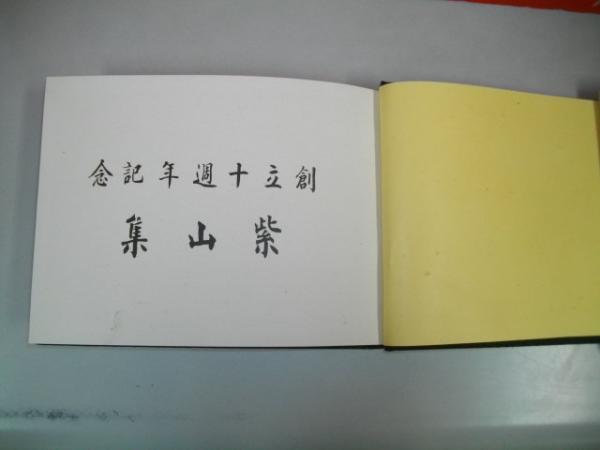 創立十週年記念
紫山集